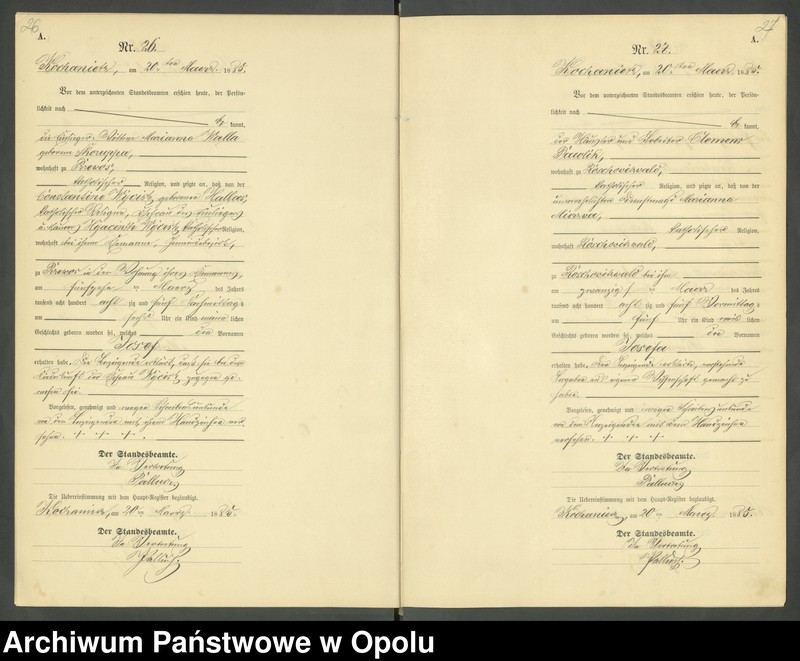 26
A.
Nr. 26.
Kochanietz, am 20. ten Maerz 1885.
Vor dem unterzeichneten Standesbeamten erschien heute, der Persön-
lichkeit nach
kannt,
die Einlieger-Wittwe Marianna Kalla
geborene
wohnhaft zu
katholischer Religion, und zeigte an, daß von der
Constantine Wycisk, geborene
katholischer Religion,
Hyacinth Wycisk, katholischer Religion,
wohnhaft bei ihrem Ehemanne,
zu in der Wohnung ihres Ehemannes,
am fünfzehn ten Maerz des Jahres
tausend acht hundert acht zig und fünf Nachmittags
um sechs Uhr ein Kind männlichen
Geschlechts geboren worden sei, welches den Vornamen
Josef
erhalten habe. Die Anzeigende erklärt, daß sie bei der
Niederkunft der Wycisk zugegen ge-
wesen sei.
Vorgelesen, genehmigt und wegen Schreibensunkunde
von der Anzeigenden mit ihrem Handzeichen ver-
sehen. + + +
Der Standesbeamte.
In Vertretung
Palluch
Die Uebereinstimmung mit dem Haupt-Register beglaubigt.
Kochanietz, am 20 ten Maerz 1885.
Der Standesbeamte.
In Vertretung
Palluch
27
A.
Nr. 27.
Kochanietz, am 20. ten Maerz 1885.
Vor dem unterzeichneten Standesbeamten erschien heute, der Persön-
lichkeit nach
kannt,
der Häusler und Arbeiter Clemens
Pawlik,
wohnhaft zu
katholischer Religion, und zeigte an, daß von der
unverehelichten Dienstmagd Marianna
katholischer Religion,
wohnhaft
zu bei ihm
am zwanzigsten Maerz des Jahres
tausend acht hundert acht zig und fünf Vormittags
um fünf Uhr ein Kind weib lichen
Geschlechts geboren worden sei, welches den Vornamen
Josefa
erhalten habe. Der Anzeigende erklärte, vorstehende
Angaben aus eigener Wissenschaft gemacht zu
haben.
Vorgelesen, genehmigt und wegen Schreibensunkunde
von dem Anzeigenden mit dem Handzeichen
versehen. + + +
Der Standesbeamte.
In Vertretung
Palluch
Die Uebereinstimmung mit dem Haupt-Register beglaubigt.
Kochanietz, am 20 ten Maerz 1885.
Der Standesbeamte.
In Vertretung
Palluch
Archiwum Państwowe w Opolu